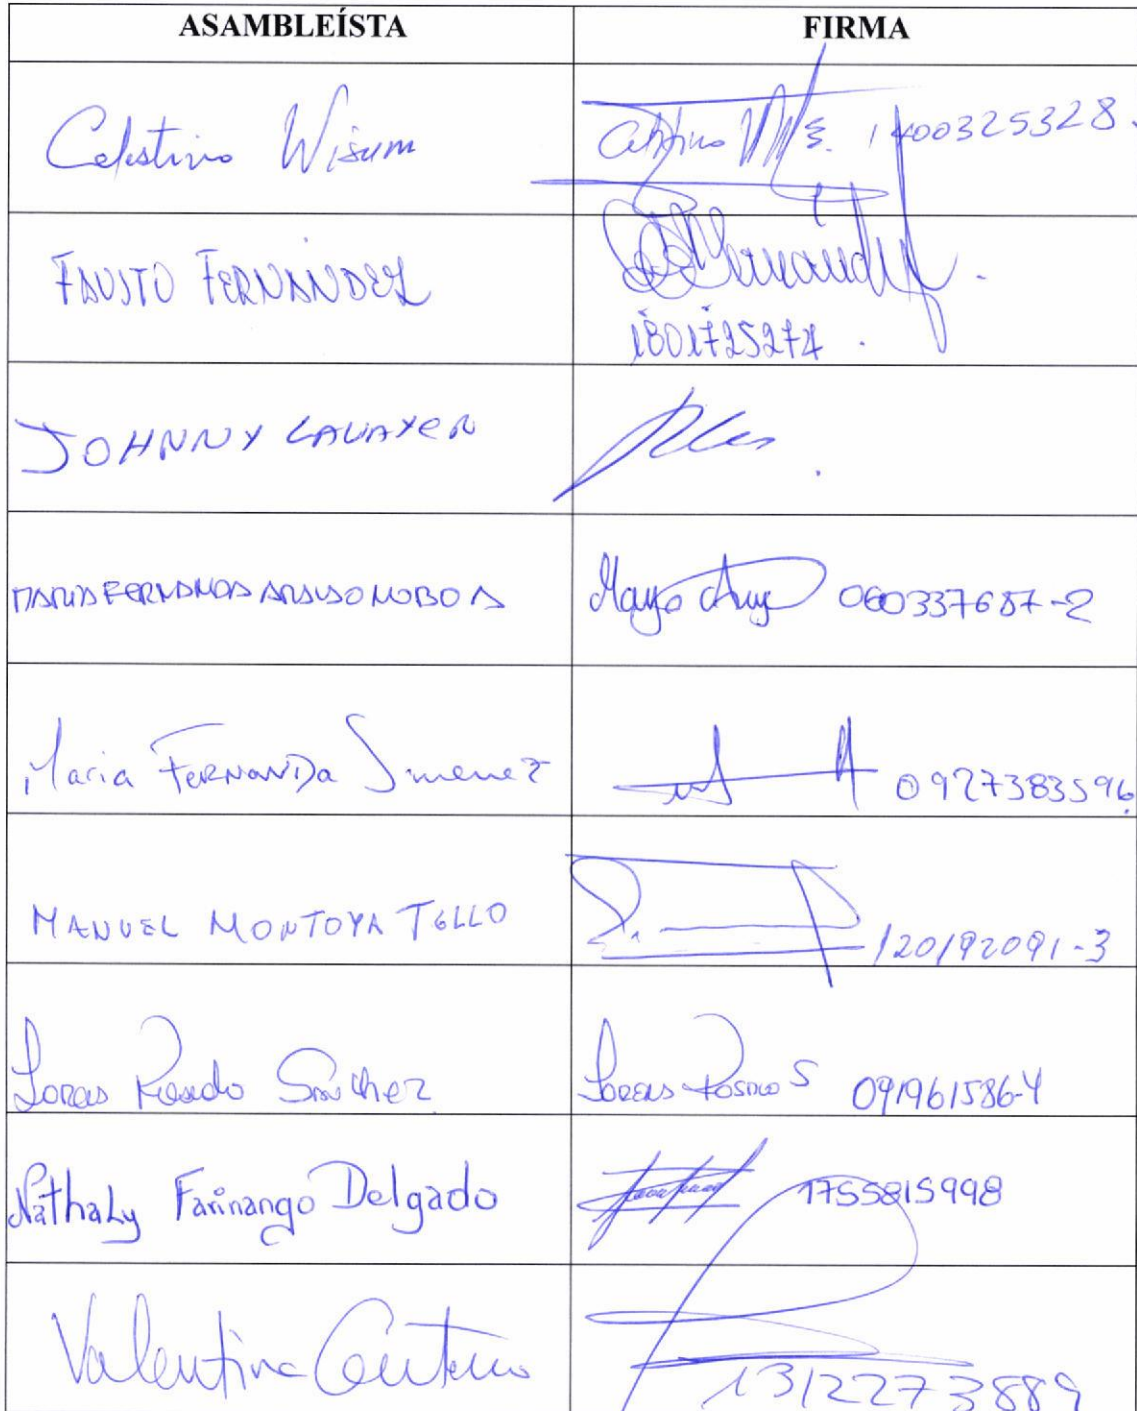 ASAMBLEÍSTA FIRMA
Celestino Wisum 1400325328.
FAUSTO FERNÁNDEZ
1801725274.
JOHNNY LAVAYEN
MARIA FERNANDA ARAUJO NOBOA 060337687-2
Maria FERNANDa Jimenez 0927383596
MANUEL MONTOYA TELLO 120192091-3
Lorena Rosado Sánchez 091961586-4
Nathaly Farinango Delgado 1755815998
Valentina Centeno 1312273889